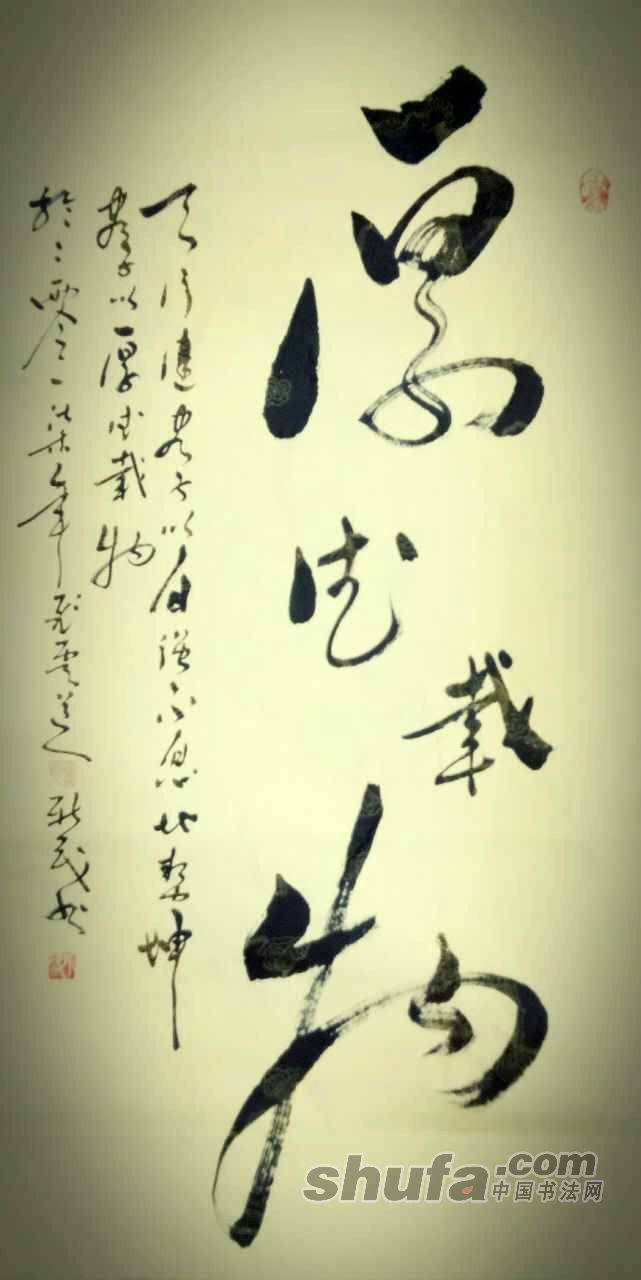 厚德载物
天行健君子以自强不息地势坤
君子以厚德载物
于二零一柒年
shufa.com
中国书法网